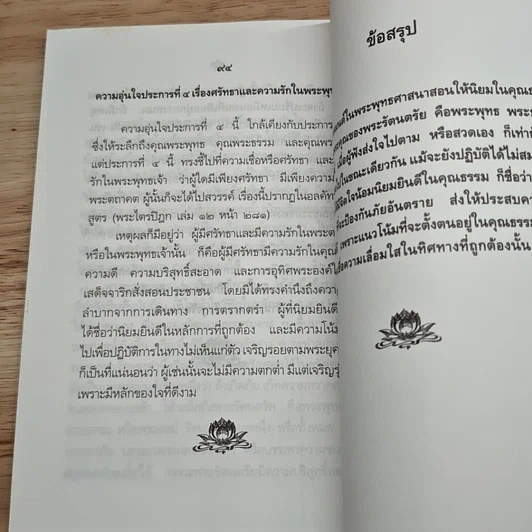 ๙๔
ความอุ่นใจประการที่ ๔ เรื่องศรัทธาและความรักในพระพุท
ความอุ่นใจประการที่ ๔ นี้ ใกล้เคียงกับประการ
ซึ่งให้ระลึกถึงคุณพระพุทธ คุณพระธรรม และคุณพระ
แต่ประการที่ ๔ นี้ ทรงชี้ไปที่ความเชื่อหรือศรัทธา และ
รักในพระพุทธเจ้า ว่าผู้ใดมีเพียงศรัทธา มีเพียงความ
พระตถาคต ผู้นั้นก็จะได้ไปสวรรค์ เรื่องนี้ปรากฏในอลคัท
สูตร (พระไตรปิฎก เล่ม ๑๒ หน้า ๒๘๑)
เหตุผลก็มีอยู่ว่า ผู้มีศรัทธาและมีความรักในพระ
หรือในพระพุทธเจ้านั้น ก็คือผู้มีศรัทธามีความรักในคุณ
ความดี ความบริสุทธิ์สะอาด และการอุทิศพระองค์
เสด็จจาริกสั่งสอนประชาชน โดยมิได้ทรงคำนึงถึงควา
ลำบากจากการเดินทาง การตรากตรำ ผู้ที่นิยมยินดี
ได้ชื่อว่านิยมยินดีในหลักการที่ถูกต้อง และมีความโน้ม
ไปเพื่อปฏิบัติการในทางไม่เห็นแก่ตัว เจริญรอยตามพระยุค
ก็เป็นที่แน่นอนว่า ผู้เช่นนั้นจะไม่มีความตกต่ำ มีแต่เจริญรุ่
เพราะมีหลักของใจที่ดีงาม
ข้อสรุป
ในพระพุทธศาสนาสอนให้นิยมในคุณธร
คุณของพระรัตนตรัย คือพระพุทธ พระธ
เมื่อผู้ฟังส่งใจไปตาม หรือสวดเอง ก็เท่ากั
ในขณะเดียวกัน แม้จะยังปฏิบัติได้ไม่สม
มีจิตใจน้อมนิยมยินดีในคุณธรรม ก็ชื่อว่า
จะป้องกันภัยอันตราย ส่งให้ประสบควา
เพราะแนวโน้มที่จะตั้งตนอยู่ในคุณธรร
ความเลื่อมใสในทิศทางที่ถูกต้องนั้น